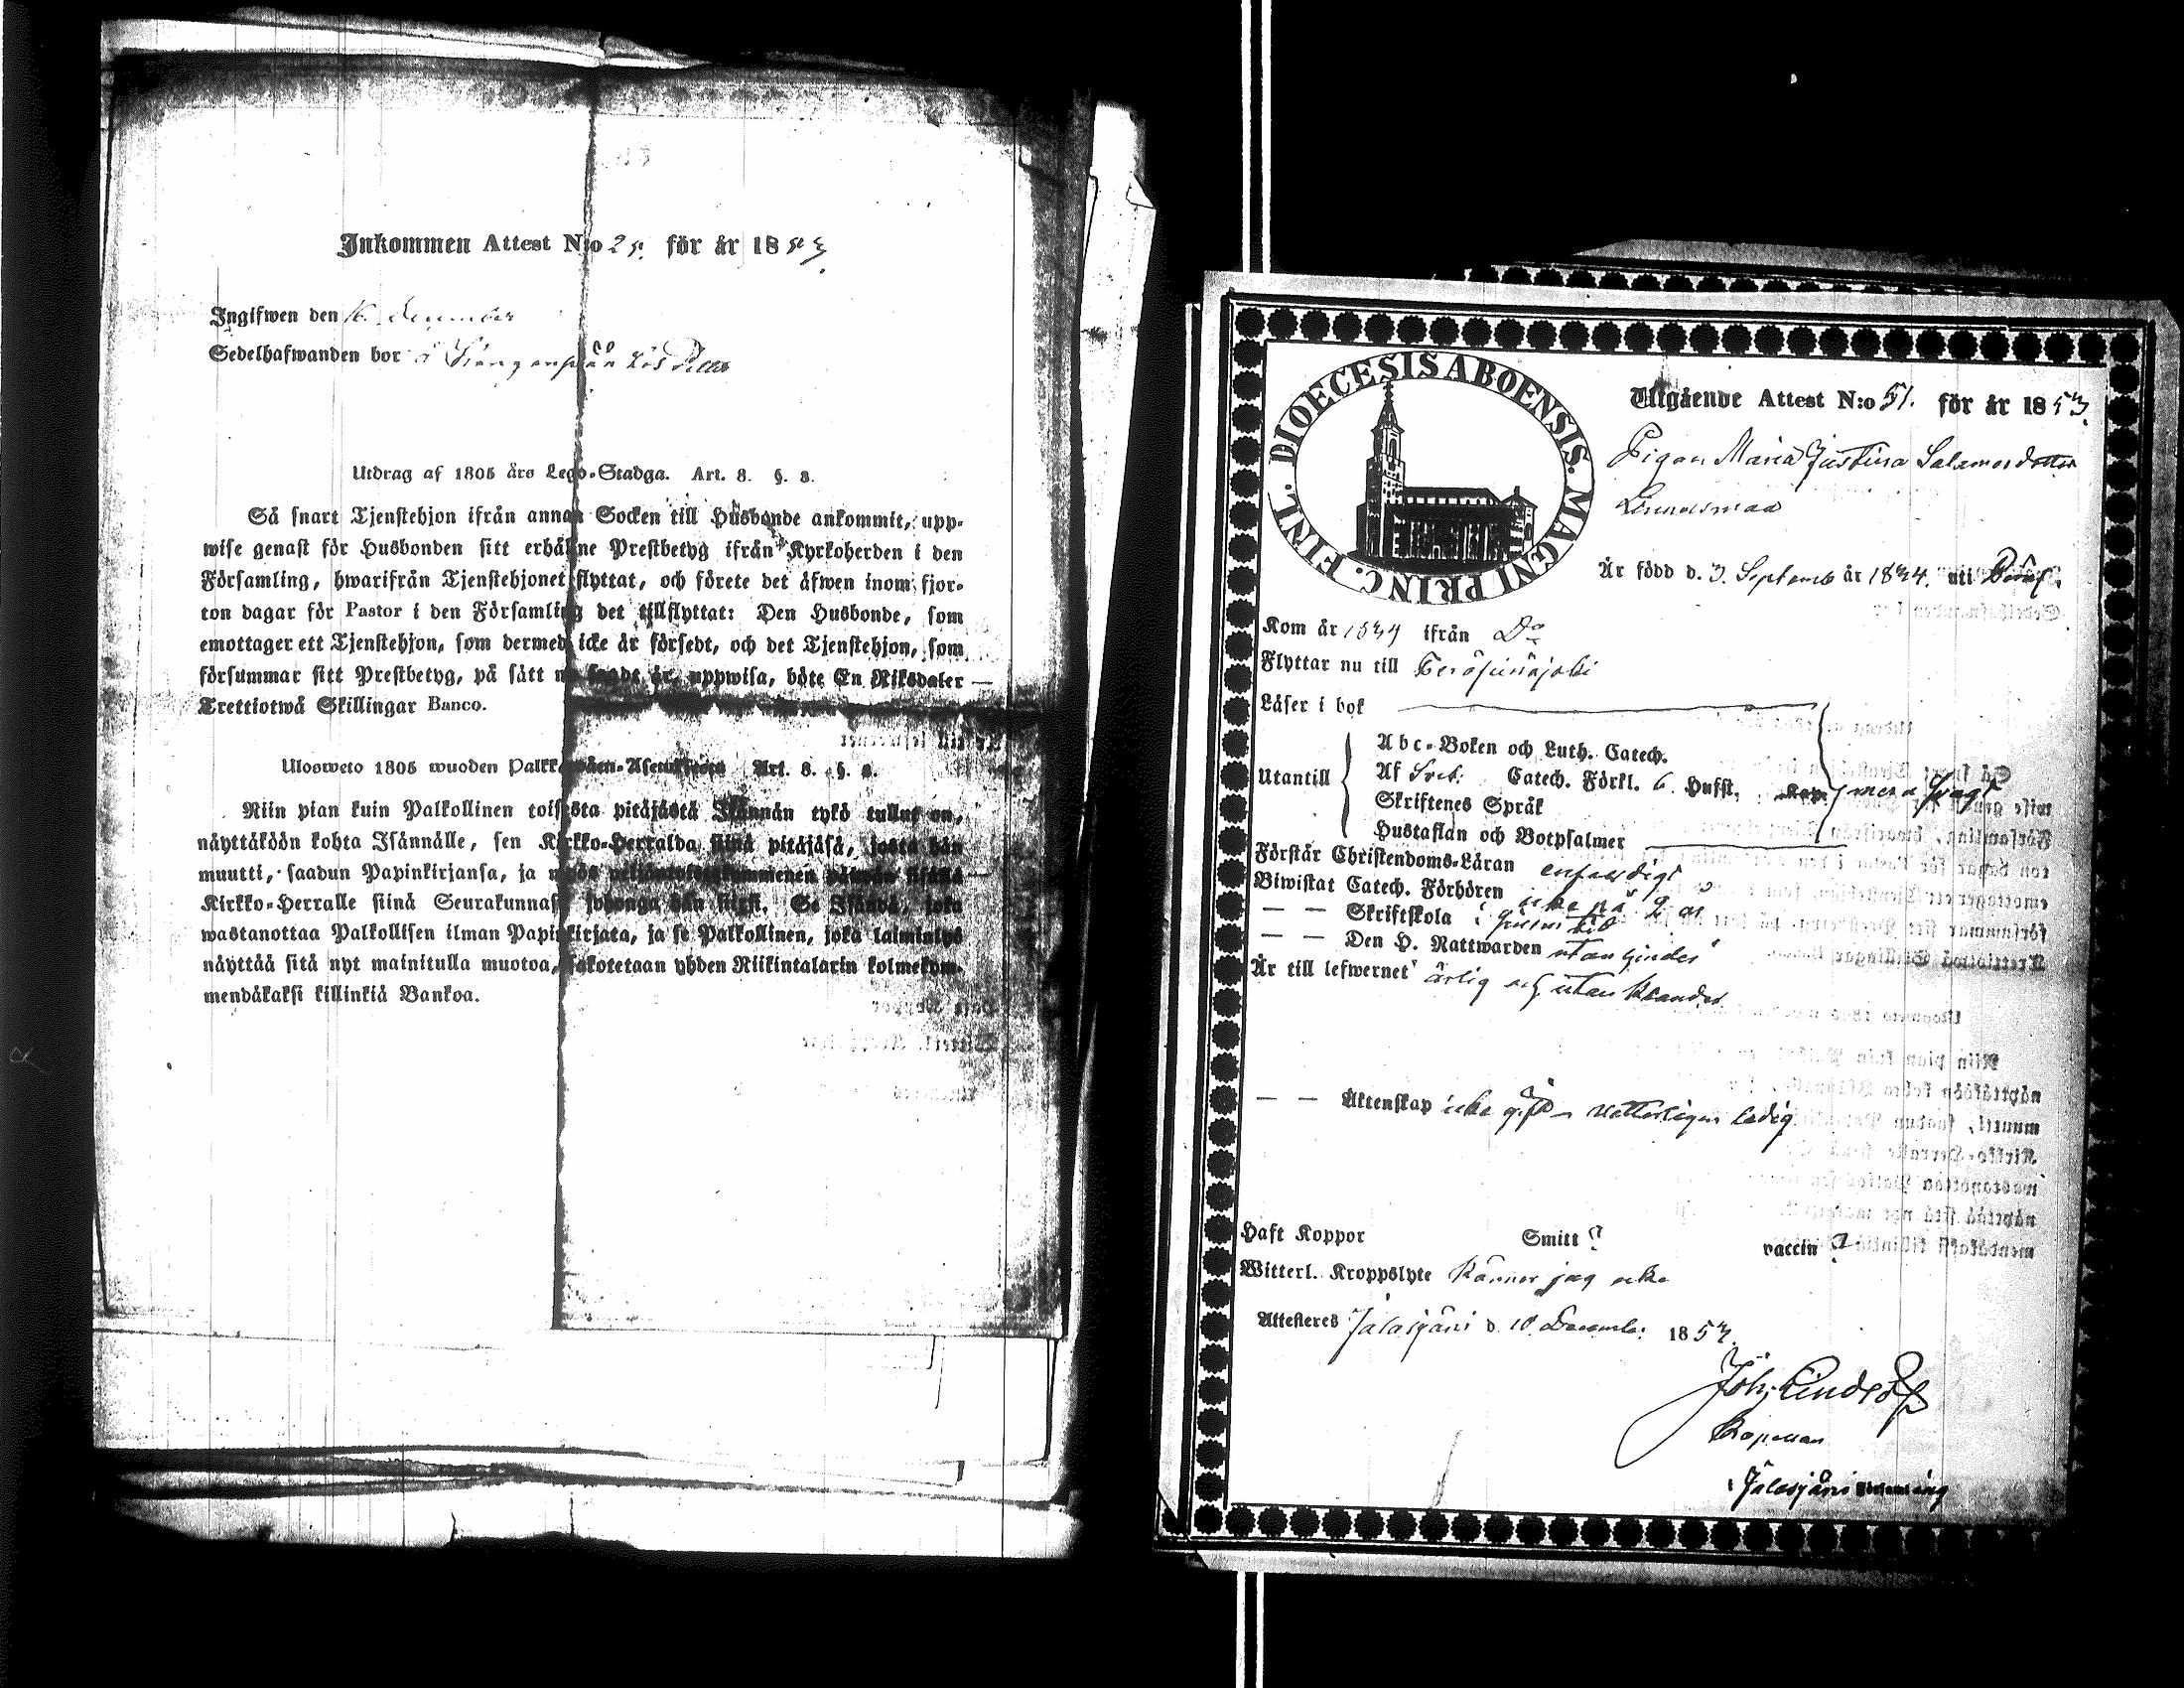 Inkommen Attest N:o 25. för år 1853.
Ingifwen den 16. December
Sedelhafwanden bor
Utdrag af 1805 års Lego-Stadga. Art. 8. §. 8.
Så snart Tjenstehjon ifrån annan Socken till Husbonde ankommit, upp-
wise genast för Husbonden sitt erhållne Prestbetyg ifrån Kyrkoherden i den
Församling, hwarifrån Tjenstehjonet flyttat, och förete det äfwen inom fjor-
ton dagar för Pastor i den Församling det tillflyttat: Den Husbonde, som
emottager ett Tjenstehjon, som dermed icke är försedt, och det Tjenstehjon, som
försummar sitt Prestbetyg, på sätt nu sagdt är, uppwisa, böte En Riksdaler
Trettiotwå Skillingar Banco.
Ulosweto 1805 wuoden Palkkawäen-Asetuksesta Art. 8. §. 8.
Niin pian kuin Palkollinen toisesta pitäjästä Isännän tykö tullut on,
näyttäköön kohta Isännälle, sen Kirkko-Herralda siinä pitäjäsä, josta hän
muutti, saadun Papinkirjansa, ja myös neljäntoistakymmenen päiwän sisällä
Kirkko-Herralle siinä Seurakunnas, johonga hän siirsi. Se Isändä, joka
wastanottaa Palkollisen ilman Papinkirjata, ja se Palkollinen, joka laiminlyö
näyttää sitä nyt mainitulla muotoa, sakotetaan yhden Riikintalarin kolmekym-
mendäkaksi killinkiä Bankoa.
DIOECESIS ABOENSIS. MAGNI PRINC. FINL.
Utgående Attest N:o 51. för år 1853.
Pigan Maria Justina Salamonsdotter
Är född d. 3. Septemb år 1834. uti
Kom år 1834 ifrån Do
Flyttar nu till Peräseinäjoki
Läser i bok
Utantill
Abc-Boken och Luth. Catech.
Af Catech. Förkl. 6 Hufst. Kap. svagt
Skriftenes Språk
Hustaflan och Botpsalmer
Förstår Christendoms-Läran enfaldigt
Biwistat Catech. Förhören icke på 2 år
— — Skriftskola i
— — Den H. Nattwarden utan hinder
Är till lefwernet ärlig och utan klander
— — Äktenskap icke gift - ledig
Haft Koppor Smitt ? vaccin ?
Witterl. Kroppslyte känner jag icke
Attesteres Jalasjärvi d. 10 December 1853.
Joh. Lindelöf
Kapellan
i Jalasjärvi församling